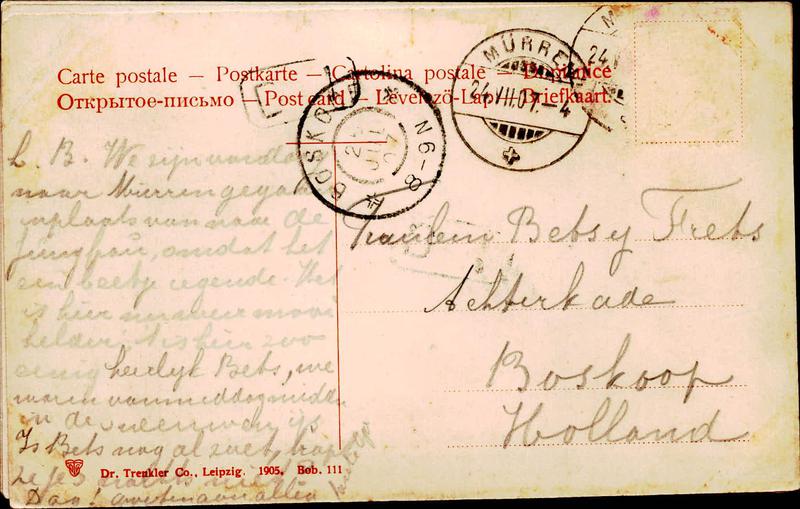 Carte postale – Postkarte – Cartolina postale –
Открытое-письмо – Post card – Levelező-Lap – Briefkaart.
MÜRREN
24.VII.07.–4
BOSKOOP
N 6-8
L. B. We zijn vandaag
naar Mürren gegaan
inplaats van naar de
Jungfrau, omdat het
een beetje regende. Het
is hier nu weer mooi
helder. 't is hier zoo
eenig heerlijk Bets, we
waren vanmiddag midden
in de sneeuw en ijs
Is Bets nog al zoet,
Dag! Groeten aan allen
Fraulein Betsy Frets
Achterkade
Boskoop
Holland
Dr. Trenkler Co., Leipzig. 1905. Bob. 111